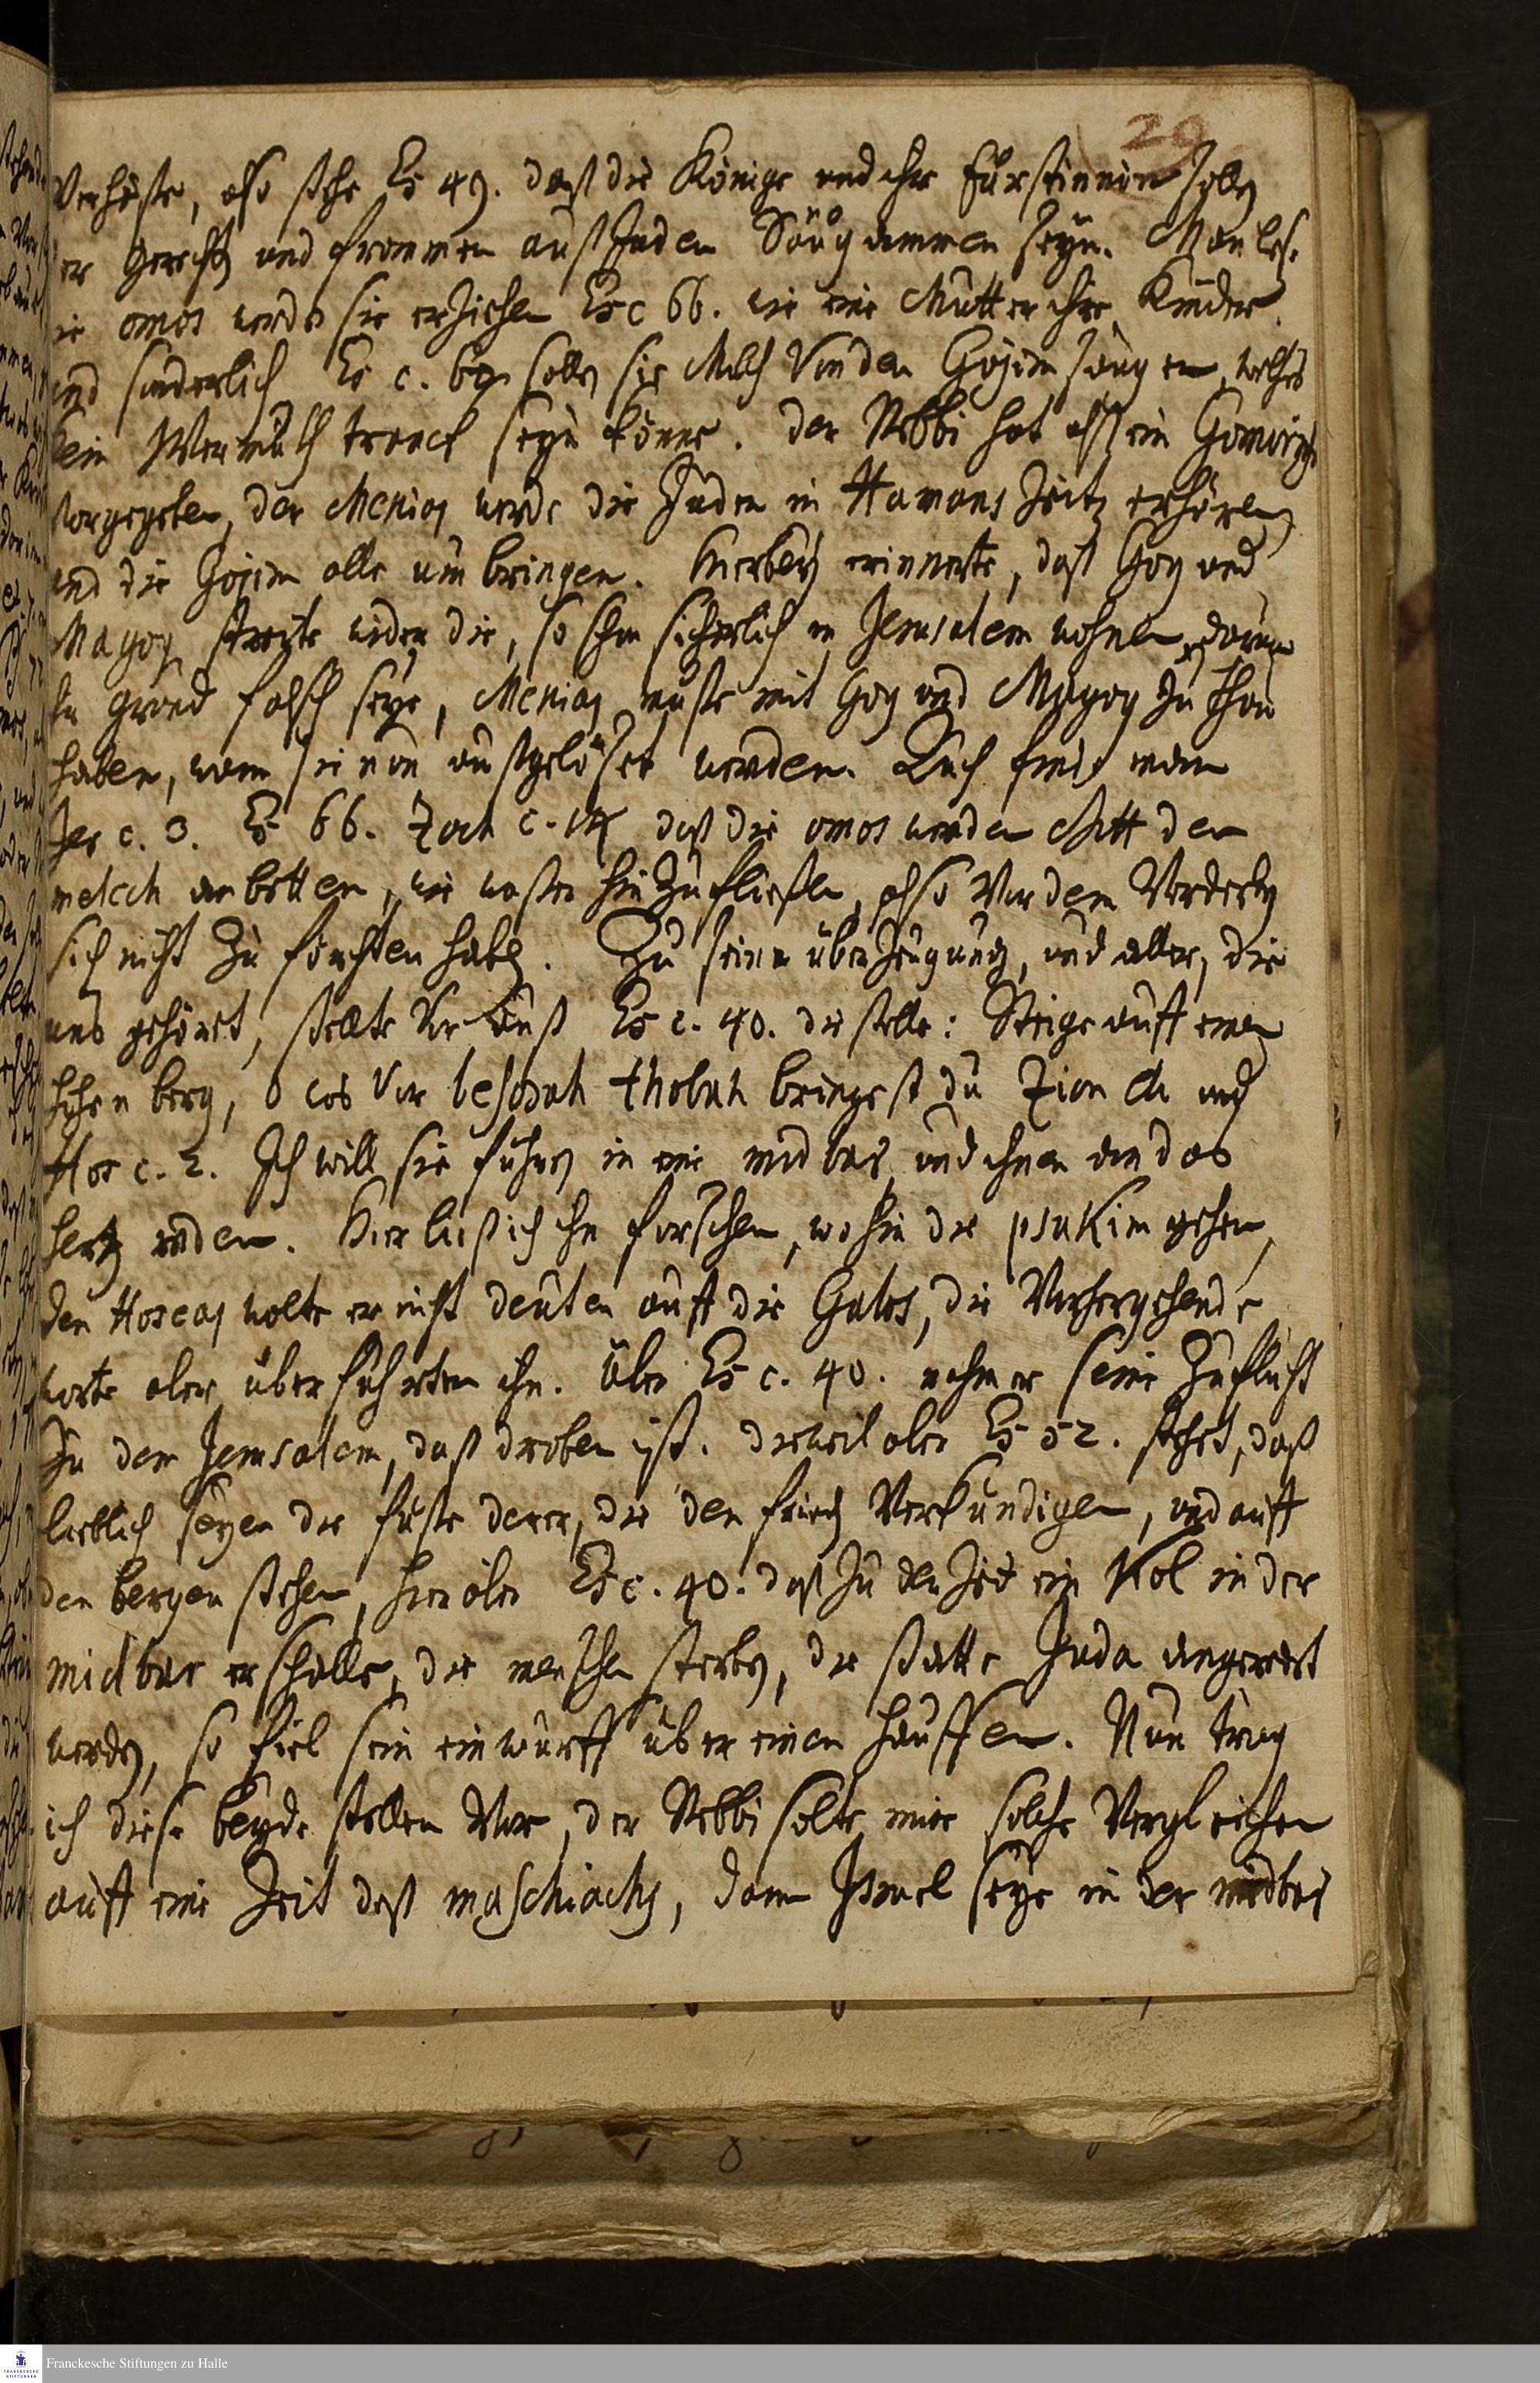 29
Verhöste, also stehe Es 49. daß die Könige und ihre Fürstinnen sollen
der Gerechten und frommen auß Juden Säugammen seyn. Man lese
die omos werde sie erziehen Es c 66. wie eine Mutter ihre Kinder
und sonderlich Es c. 60 sollen sie Milch Von den Gojim saugen, welches
kein Wermuth tranck seyn könne. Der Rebbi hat alß ein
vorgegeben, der Messias werde die Juden in Hamans Zeiten erhören
und die Gojim alle umbringen. Hierbey erinnerte, daß Gog und
Magog streite wider die, so schon sicherlich in Jerusalem wohnen, darum
grund falsch seye, Messias müste mit Gog und Magog zu thun
haben, wann sie nun außgelöset werden. Auch findt man
Jer c. 3. Es 66. Zach c. 14 daß die omos werden Mitt den
melech anbetten, wie wasser hinzufließen, also Vor dem Verderben
sich nicht zu förchten haben. Zu seiner überzeugung, und aller, die
uns gehöret, stellte Vorauß Es c. 40. die stelle: Steige auff einen
hohen berg, o was Vor besorah thobah bringest du Zion etc und
Hos c. 2. Ich will sie führen in eine midbar, und ihnen an das
hertz reden. Hier ließ ich ihn forschen, wohin die psukim gehen,
den Hoseas wolte er nicht deuten auff die Galos, die Vorhergehende
worte aber überführten ihn. Über Es c. 40. nahm er seine Zuflucht
Zu dem Jerusalem, daß droben ist. dieweil aber Es 52. stehet, daß
lieblich seyen die füsse derer, die den frieden Verkündigen, und auff
den bergen stehen, hier aber Es c. 40. daß zu der Zeit ein Kol in der
midbar erschalle, die menschen sterben, die stätte Juda angeredet
werden, so fiel sein einwurff über einen hauffen. Nun trug
ich diese beyde stellen Vor, der Rebbi solte mir solche Vergleichen
auff eine Zeit deß maschiachs, dann Israel seye in der midbar
Franckesche Stiftungen zu Halle